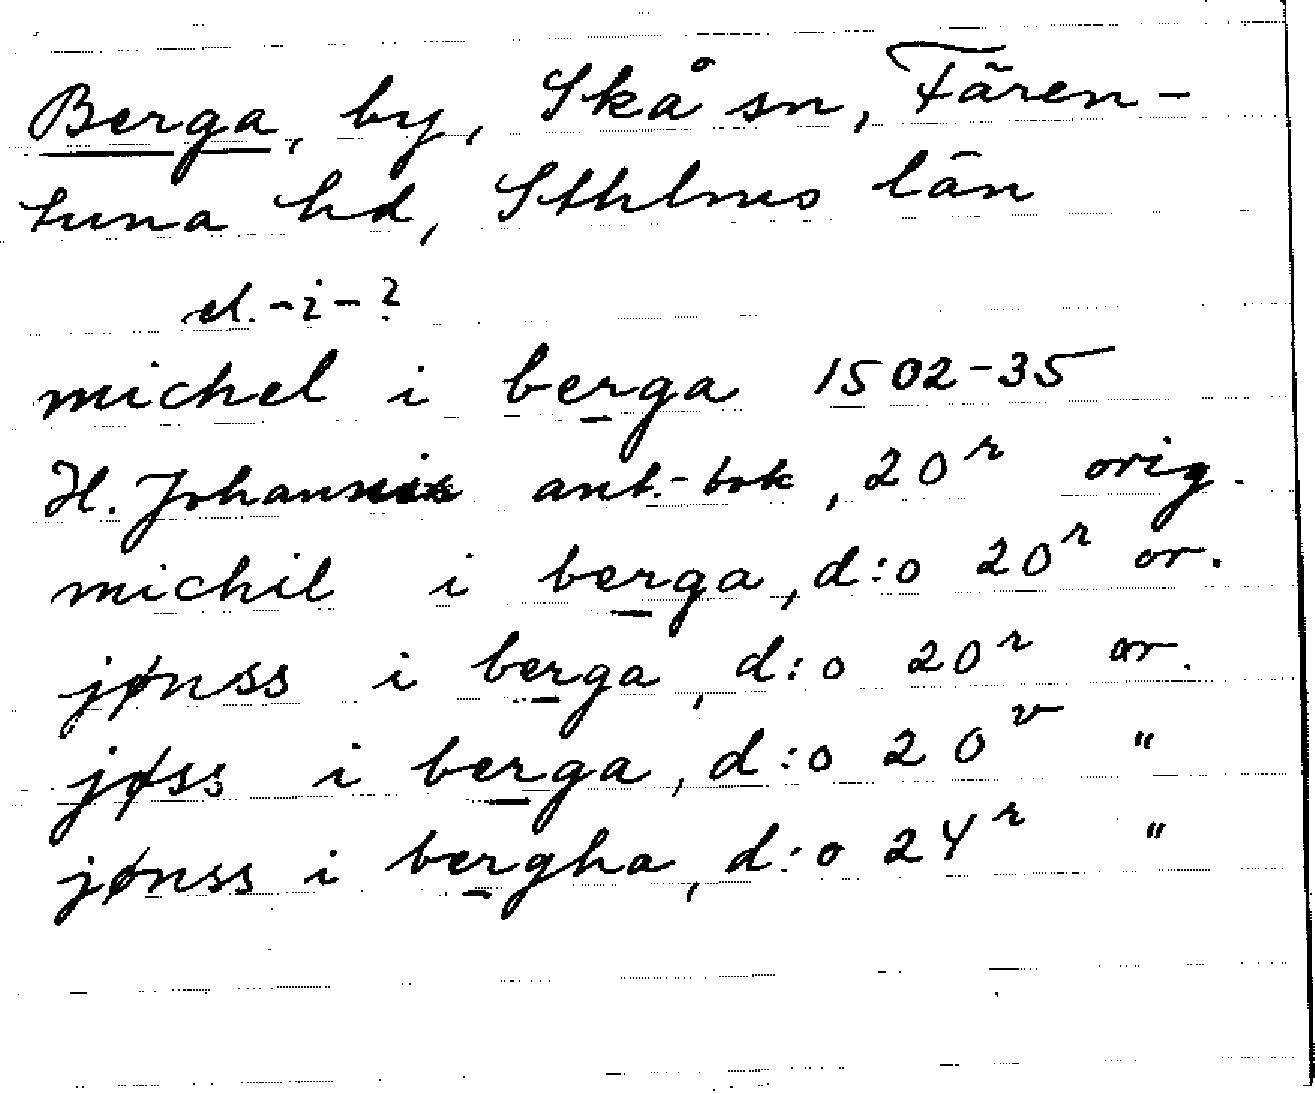 Berga, by, Skå sn, Fären-
tuna hd, Sthlms län
el. -i- ?
michel i berga 1502-35
H. Johannis ant.-bok, 20r orig.
michil i berga, d:o 20r or.
jønss i berga, d:o 20r or.
jøss i berga, d:o 20v "
jønss i bergha, d:o 24r "